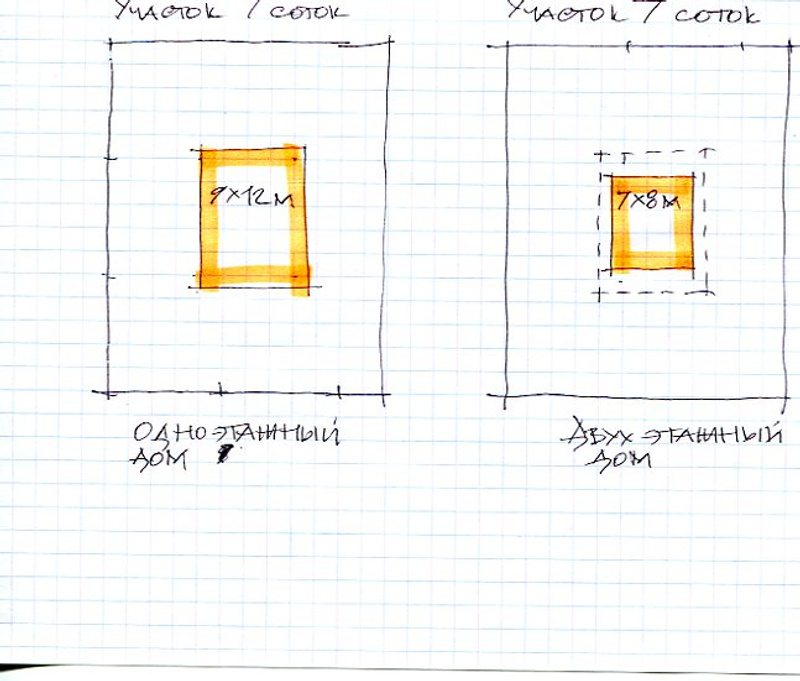 УЧАСТОК 7 СОТОК
УЧАСТОК 7 СОТОК
9×12м
7×8м
ОДНОЭТАЖНЫЙ
ДОМ
ДВУХЭТАЖНЫЙ
ДОМ